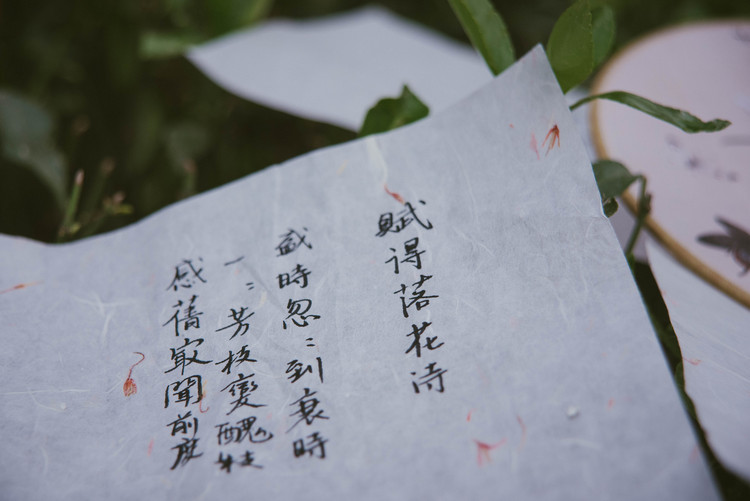 賦得落花诗
盛時忽〻到衰時
一〻芳枝變醜枝
感舊最聞前度